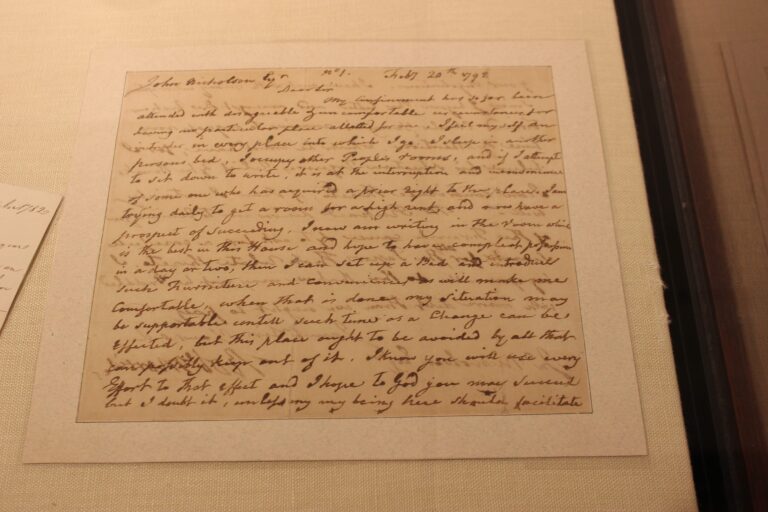 John Nicholson Esqr No 1. Feby 20th 1798
Dear Sir
My Confinement has so far been
attended with disagreeable & uncomfortable circumstances, for
having no particular place allotted for me, I feel myself an
intruder in every place into which I go, I sleep in another
persons bed, I occupy other People's rooms, and if I attempt
to sit down to write, it is at the interruption and inconvenience
of some one who has acquired a prior right to the place. I am
trying daily to get a room for a high rent, and now have a
prospect of succeeding, I now am writing in the room which
is the best in this House and hope to have compleat possession
in a day or two, then I can set up a Bed and introduce
such Furniture and conveniences as will make me
Comfortable, when that is done, my situation may
be supportable untill such time as a Change can be
Effected, but this place ought to be avoided by all that
can possibly keep out of it. I know you will use every
Effort to that effect and I hope to God you may succeed
but I doubt it, unless my my being here should facilitate